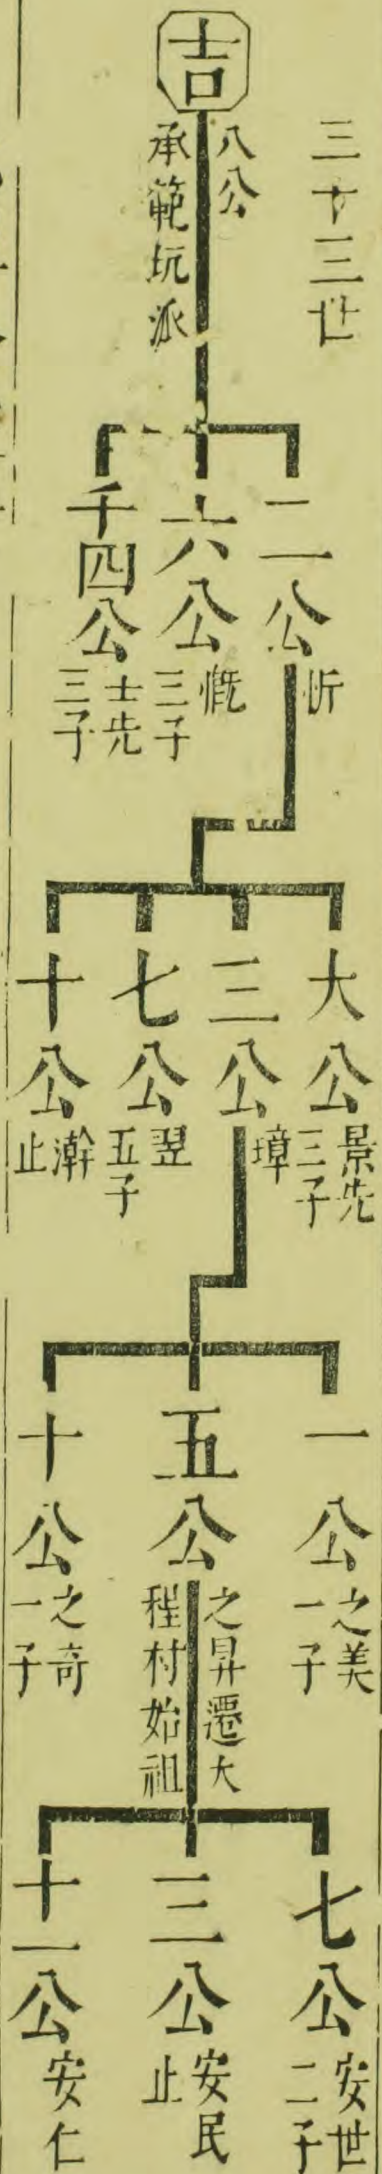 三十三世
吉
八公
承範坑派
二公
忻
六公
慨
三子
千四公
士先
三子
大公
景先
三子
三公
璋
七公
翌
五子
十公
澣
止
一公
之美
一子
五公
之昇遷大
程村始祖
十公
之奇
一子
七公
安世
二子
三公
安民
止
十一公
安仁